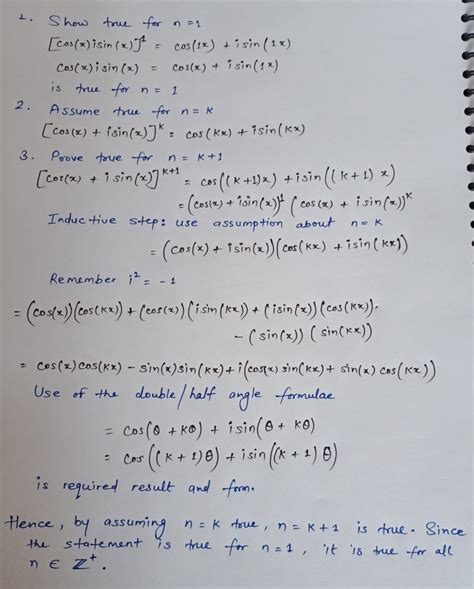 1. Show true for n=1
[cos(x)isin(x)]¹ = cos(1x) + isin(1x)
cos(x)isin(x) = cos(x) + isin(1x)
is true for n = 1
2. Assume true for n = K
[cos(x) + isin(x)]ᴷ = cos(Kx) + isin(Kx)
3. Prove true for n = K+1
[cos(x) + isin(x)]ᴷ⁺¹ = cos((K+1)x) + isin((K+1)x)
= (cos(x) + isin(x))¹ (cos(x) + isin(x))ᴷ
Inductive step: use assumption about n=K
= (cos(x) + isin(x))(cos(Kx) + isin(Kx))
Remember i² = -1
= (cos(x))(cos(Kx)) + (cos(x))(isin(Kx)) + (isin(x))(cos(Kx)).
- (sin(x))(sin(Kx))
= cos(x)cos(Kx) - sin(x)sin(Kx) + i(cos(x)sin(Kx) + sin(x)cos(Kx))
Use of the double/half angle formulae
= cos(θ + Kθ) + isin(θ + Kθ)
= cos((K+1)θ) + isin((K+1)θ)
is required result and form.
Hence, by assuming n=K true, n=K+1 is true. Since
the statement is true for n=1, it is true for all
n ∈ Z⁺.